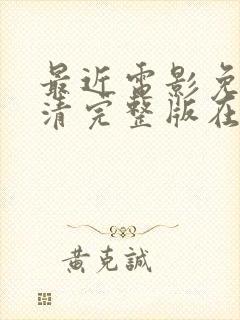 最近电影免
清完整版在
黄克誠